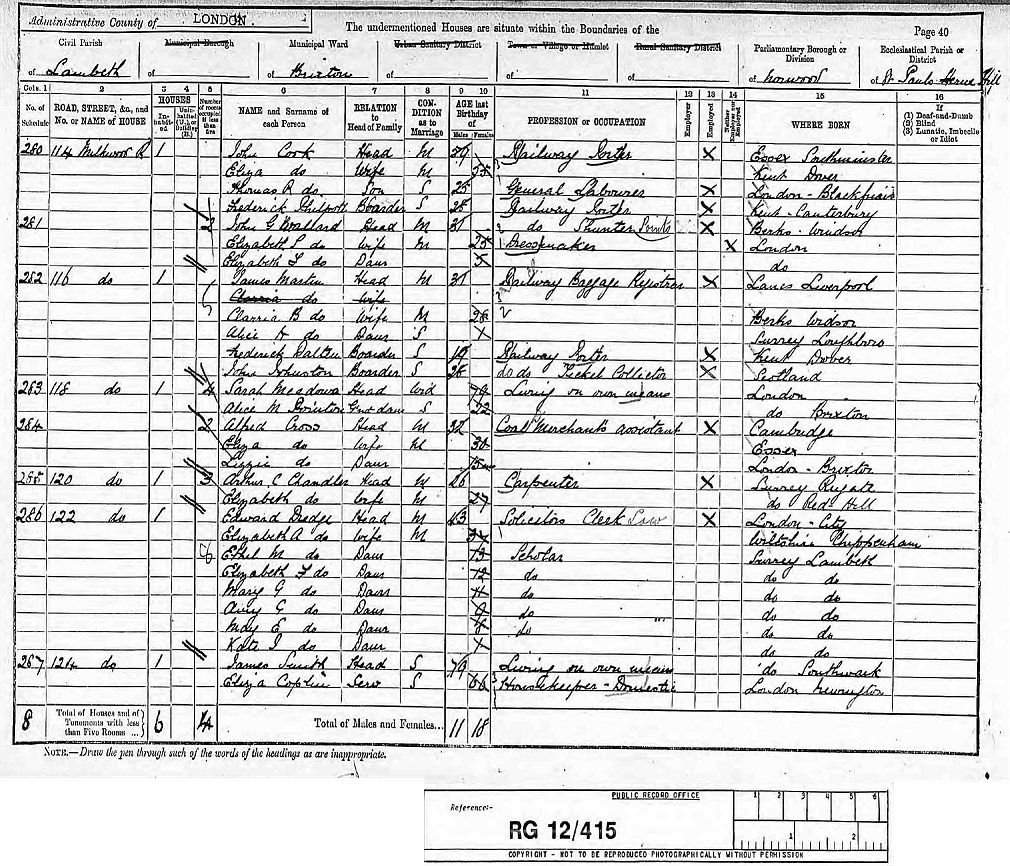 Administrative County of LONDON
The undermentioned Houses are situate within the Boundaries of the
Page 40
Civil Parish
Municipal Borough
Municipal Ward
Urban Sanitary District
Town or Village or Hamlet
Rural Sanitary District
Parliamentary Borough or Division
Ecclesiastical Parish or District
of Lambeth
of
of Brixton
of
of
of
of Norwood
of St Pauls Herne Hill
Cols. 1 2 3 4 5 6 7 8 9 10 11 12 13 14 15 16
No. of Schedule
ROAD, STREET, &c., and No. or NAME of HOUSE
HOUSES
In-habit-ed
Unin-habited (U.), or Building (B.)
Number of rooms occupied if less than five
NAME and Surname of each Person
RELATION to Head of Family
CON-DITION as to Marriage
AGE last Birthday of
Males Females
PROFESSION or OCCUPATION
Employer
Employed
Neither Employer nor Employed
WHERE BORN
If
(1) Deaf-and-Dumb
(2) Blind
(3) Lunatic, Imbecile or Idiot
280 114 Milkwood R 1 John Cook Head M 59 Railway Porter X Essex Southminster
Eliza do Wife M Kent Dover
Thomas R do Son S 25 General Labourer X London - Blackfriars
Frederick Philpott Boarder S 25 Railway Porter X Kent - Canterbury
281 2 John G Wallard Head M 31 do Shunter Points X Berks - Windsor
Elizabeth do Wife M 25 Dressmaker X London
Elizabeth do Daur 5 do
282 116 do 1 James Martin Head M 31 Railway Baggage Registrar X Lancs Liverpool
Clarria do Wife
5 Clarria B do Wife M 26 Berks Widsor
Alice H do Daur S Surrey Loughboro
Frederick Dalton Boarder S 19 Railway Porter X Kent Dover
John Johnston Boarder S 28 do do Ticket Collector X Scotland
283 118 do 1 4 Sarah Meadows Head Wid 79 Living on own means London
Alice M Grnd daur S 22 do Brixton
284 2 Alfred Cross Head M 32 Coal Merchants assistant X Cambridge
Eliza do Wife M 30 Essex
Lizzie do Daur London - Brixton
285 120 do 1 3 Arthur C Chandler Head M 26 Carpenter X Surrey Rygate
Elizabeth do Wife M 27 do Red Hill
286 122 do 1 Edward Dredge Head M 43 Solicitors Clerk Law X London - City
Elizabeth A do Wife M 37 Wiltshire Chippenham
Ethel M do Daur 13 Scholar Surrey Lambeth
Elizabeth F do Daur 12 do do do
Mary G do Daur 11 do do do
Amy G do Daur 9 do do do
May E do Daur do do do
Kate I do Daur do do
287 124 do 1 James Smith Head S 79 Living on own means do Southwark
Eliza Coplin Serv S 66 Housekeeper - Domestic London Newington
8 Total of Houses and of Tenements with less than Five Rooms ... 6 4 Total of Males and Females... 11 18
NOTE.—Draw the pen through such of the words of the headings as are inappropriate.
PUBLIC RECORD OFFICE
Reference:-
RG 12/415
1 2 3 4 5 6
1 2
COPYRIGHT - NOT TO BE REPRODUCED PHOTOGRAPHICALLY WITHOUT PERMISSION